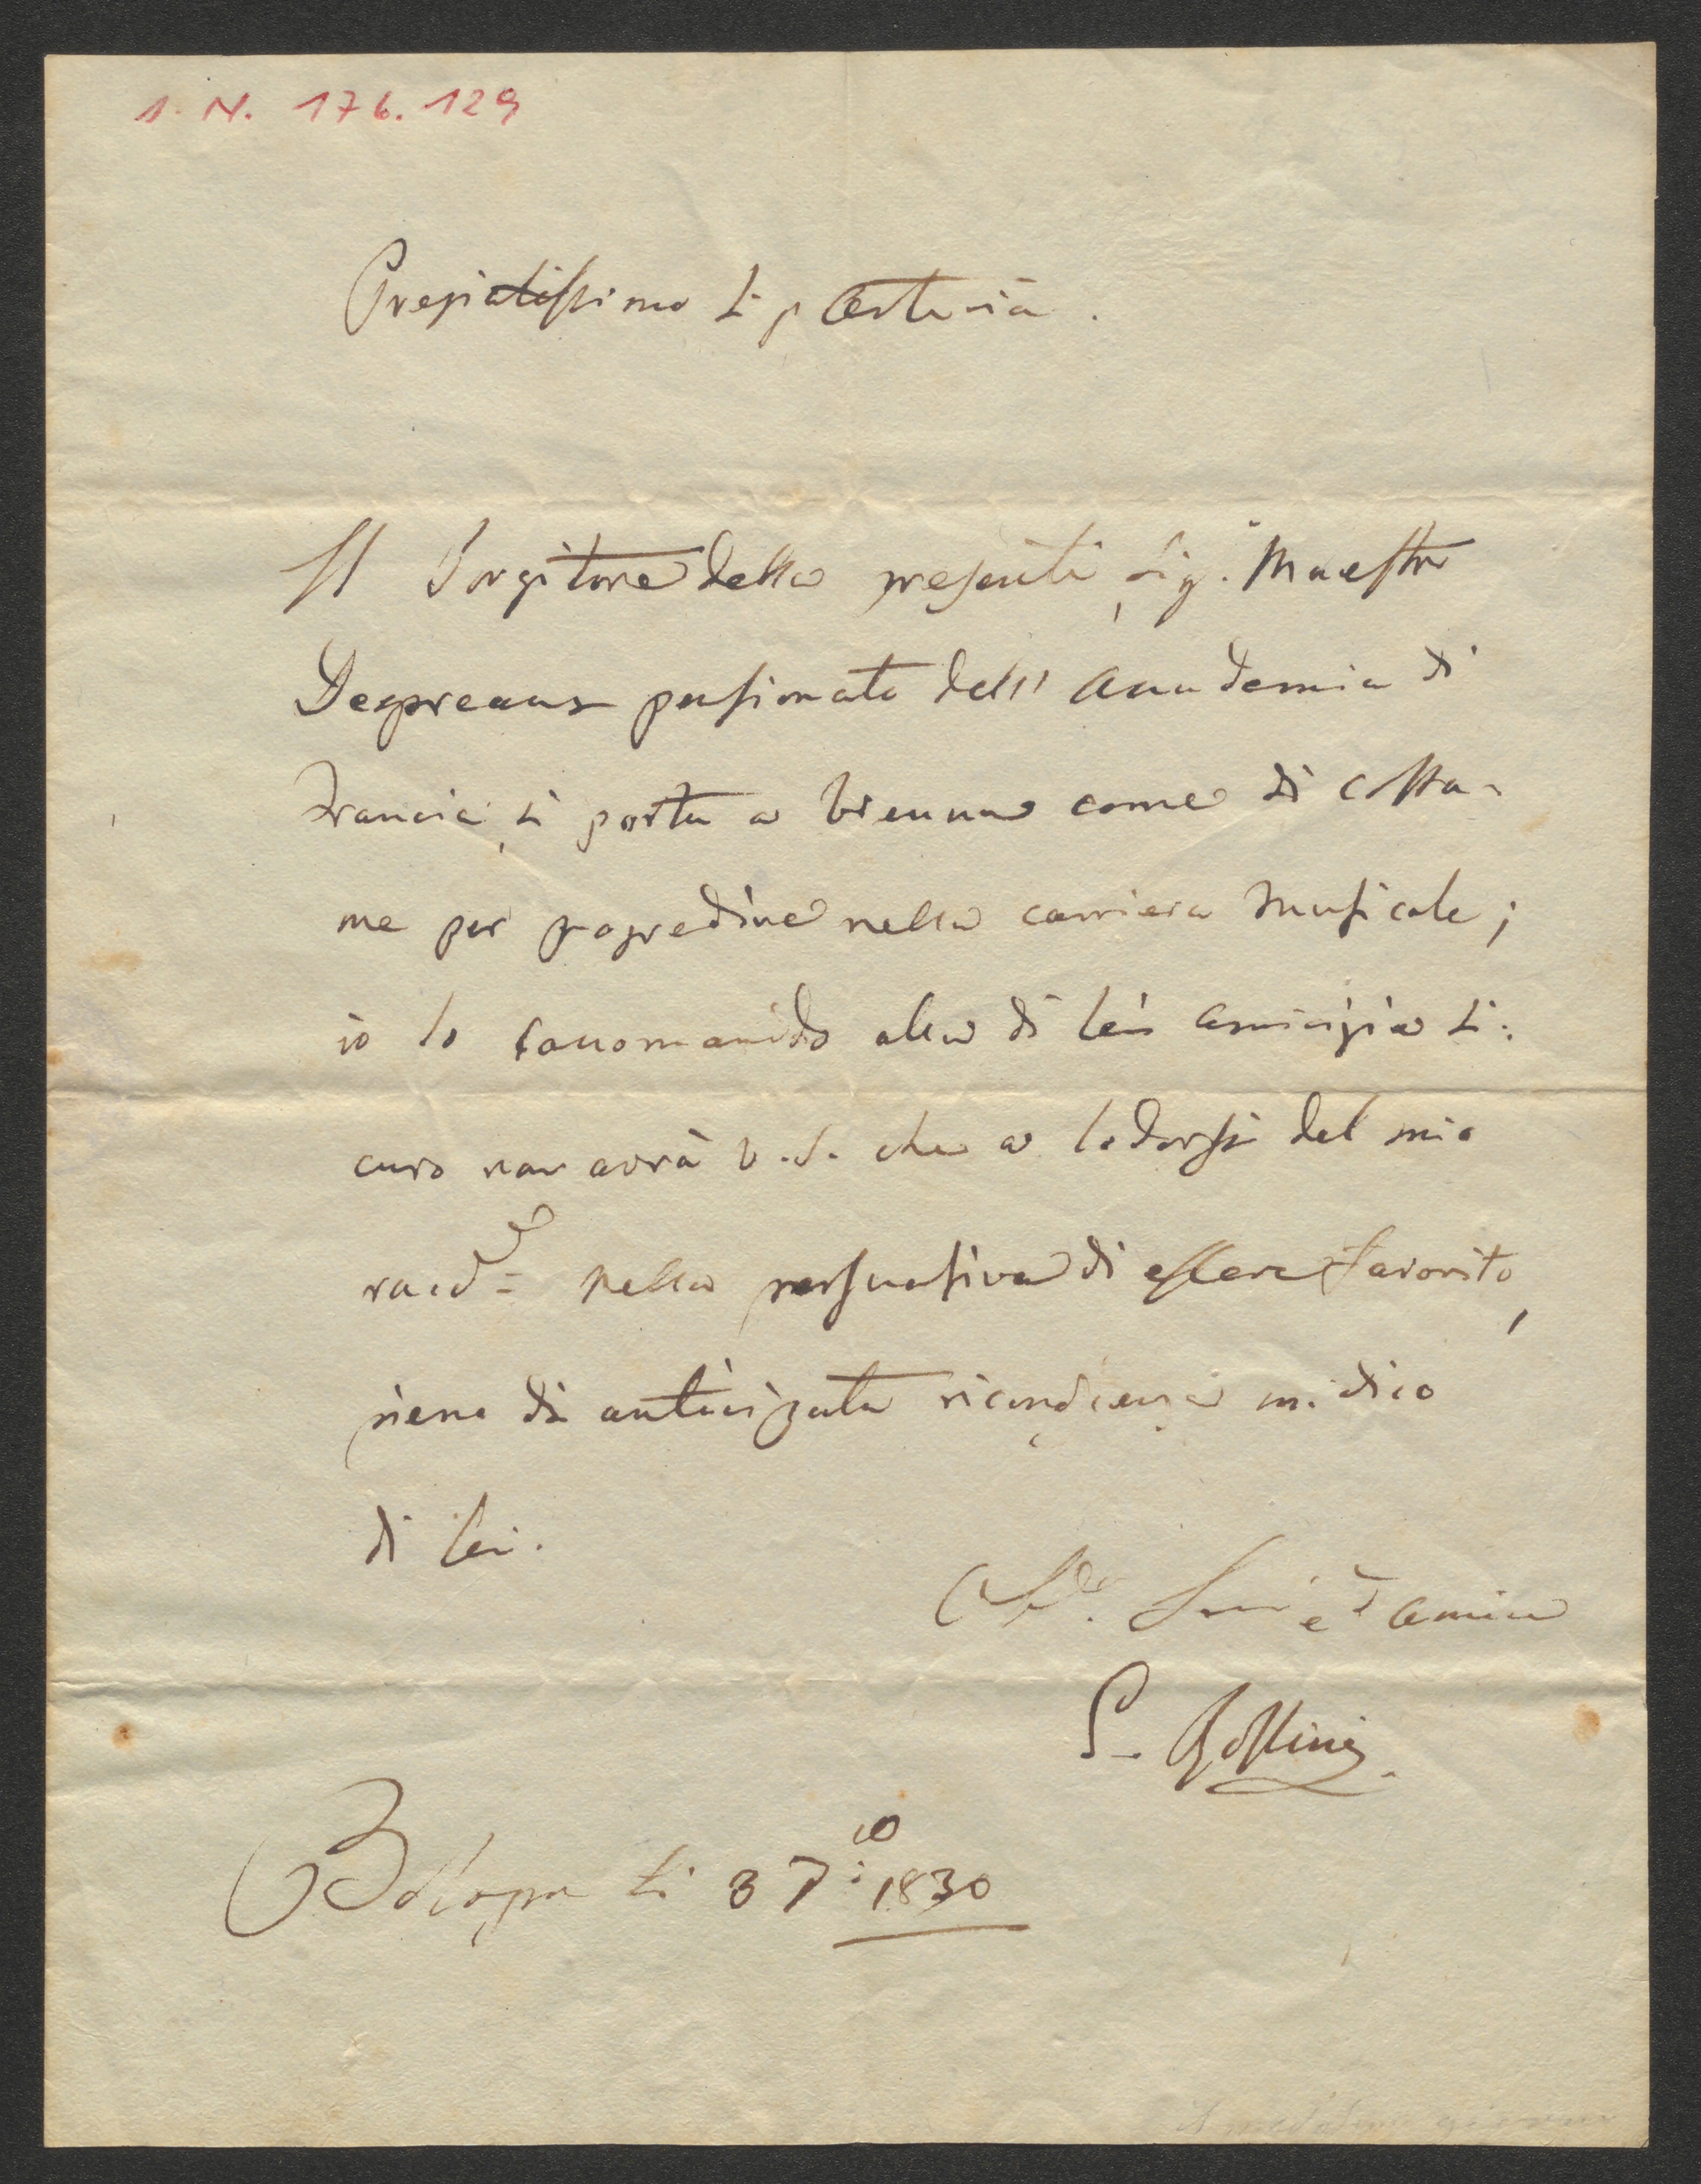 I. N. 176.129
Pregiatissimo Sig Artaria.
Il Porgitore della presente, Sig. Maestro
Despreaux pensionato dell' Accademia di
Francia, si porta a Vienna come di costu-
me per progredire nella carriera Musicale;
io lo raccomando alla di lei amicizia si:
curo non avrà V. S. che a lodarsi del mio
racd.e = Nella persuasiva di essere favorito,
pieno di anticipata riconoscenza mi dico
di lei.
Serv.e ed amico
G. Rossini
Bologna li 3 7:io 1830